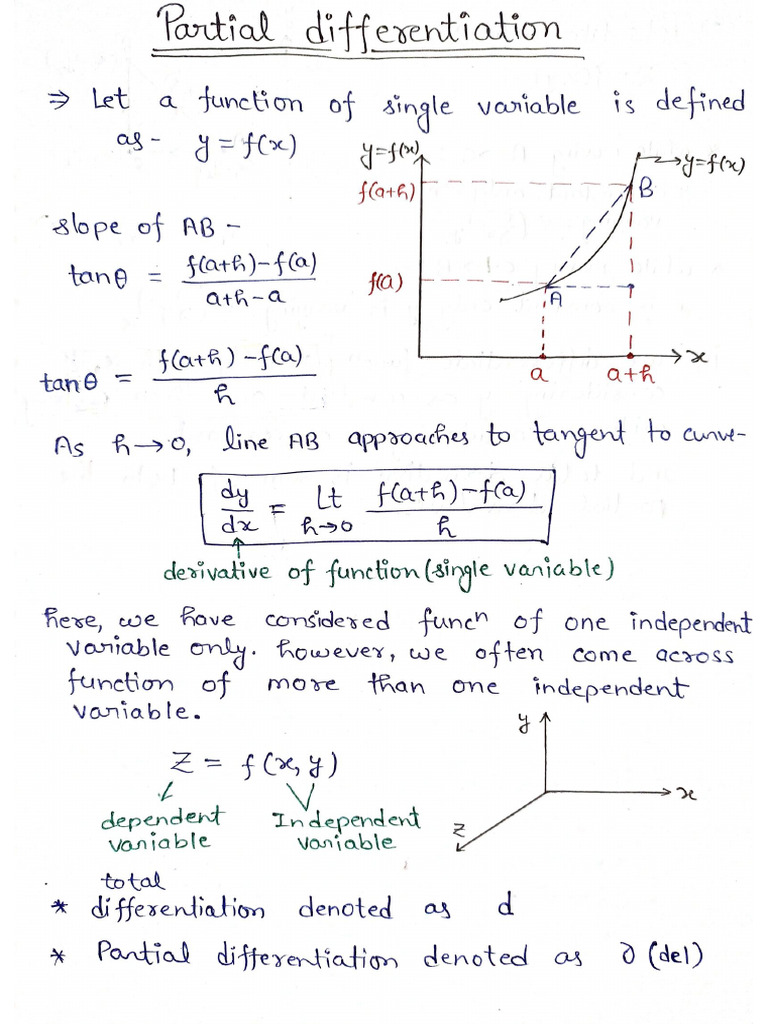 Partial differentiation
⇒ Let a function of single variable is defined
as - y = f(x)
y=f(x)
y=f(x)
f(a+h)
B
slope of AB -
tanθ = f(a+h)-f(a) / a+h-a
f(a)
A
x
a
a+h
tanθ = f(a+h)-f(a) / h
As h→0, line AB approaches to tangent to curve-
dy/dx = Lt h→0 f(a+h)-f(a) / h
derivative of function (single variable)
here, we have considered funcⁿ of one independent
variable only. however, we often come across
function of more than one independent
variable.
y
Z = f(x,y)
x
dependent
variable
Independent
variable
z
total
* differentiation denoted as d
* Partial differentiation denoted as ∂ (del)